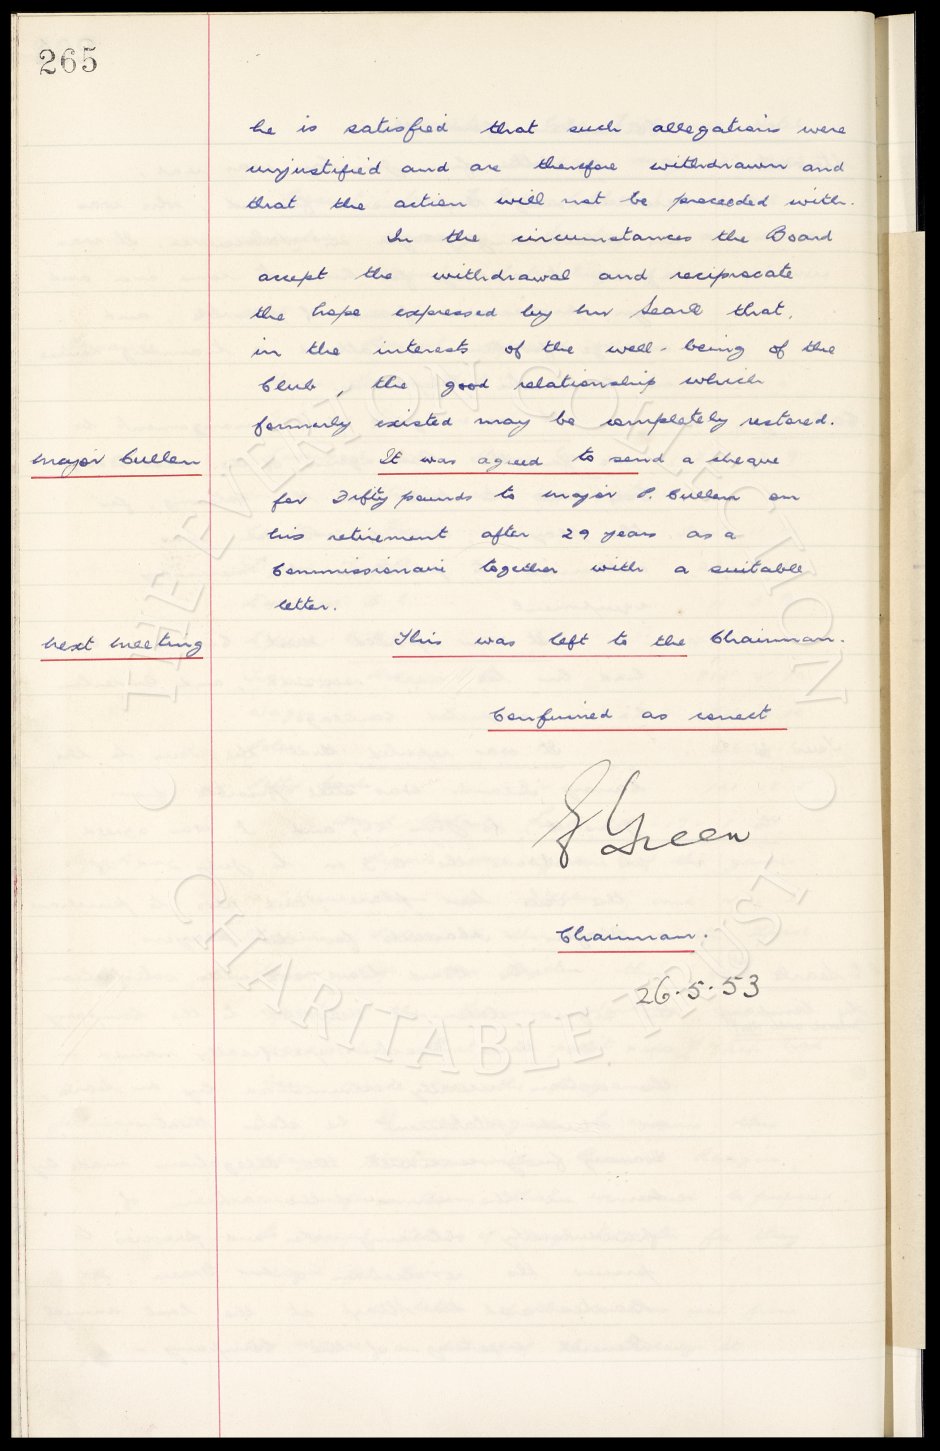 265
he is satisfied that such allegations were
unjustified and are therefore withdrawn and
that the action will not be proceeded with.
In the circumstances the Board
accept the withdrawal and reciprocate
the hope expressed by Mr Searle that,
in the interests of the well-being of the
Club, the good relationship which
formerly existed may be completely restored.
Major Cullen It was agreed to send a cheque
for Fifty pounds to Major P. Cullen on
his retirement after 29 years as a
Commissionaire together with a suitable
letter.
Next Meeting This was left to the Chairman.
Confirmed as correct
Green
Chairman.
26.5.53
THE EVERTON COLLECTION
CHARITABLE TRUST